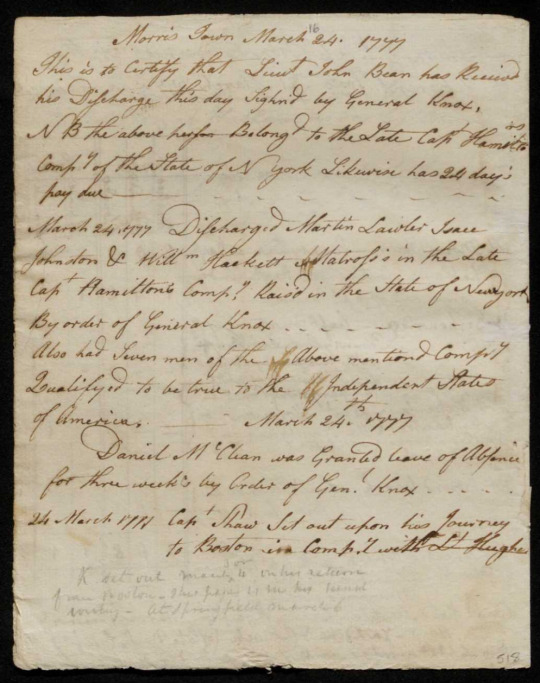 16
Morris Town March 24. 1777
This is to Certify that Lieut John Bean has Receiv'd
his Discharge this day, Sign'd by General Knox,
N B the above Belong'd to the Late Capt Hamilto
ns
Compy of the State of N York Likewise has 24 day's
pay due
March 24. 1777 Discharged Martin Lawler Isaac
Johnston & Willm Hackett Matross's in the Late
Capt Hamilton's Compy Rais'd in the State of New york
By order of General Knox
Also had Seven men of the Above mention'd Compy
Qualifyed to be true to the Independent States
of America. March 24th. 1777
Daniel McClean was Granted leave of Absence
for three week's by Order of Genl Knox
24 March 1777 Capt Shaw Sit out upon his Journey
to Boston in Compy with Lt Hughes
K set out on his return
from Boston - this paper is in his hand
writing - At Springfield March 6
518